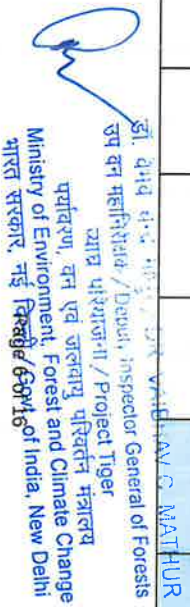 डॉ. वैभव चन्द्र माथुर / DR VAIBHAV C MATHUR
उप वन महानिरीक्षक / Deputy Inspector General of Forests
व्याघ्र परियोजना / Project Tiger
पर्यावरण, वन एवं जलवायु परिवर्तन मंत्रालय
Ministry of Environment, Forest and Climate Change
भारत सरकार, नई दिल्ली / Govt. of India, New Delhi
Page 6 of 16